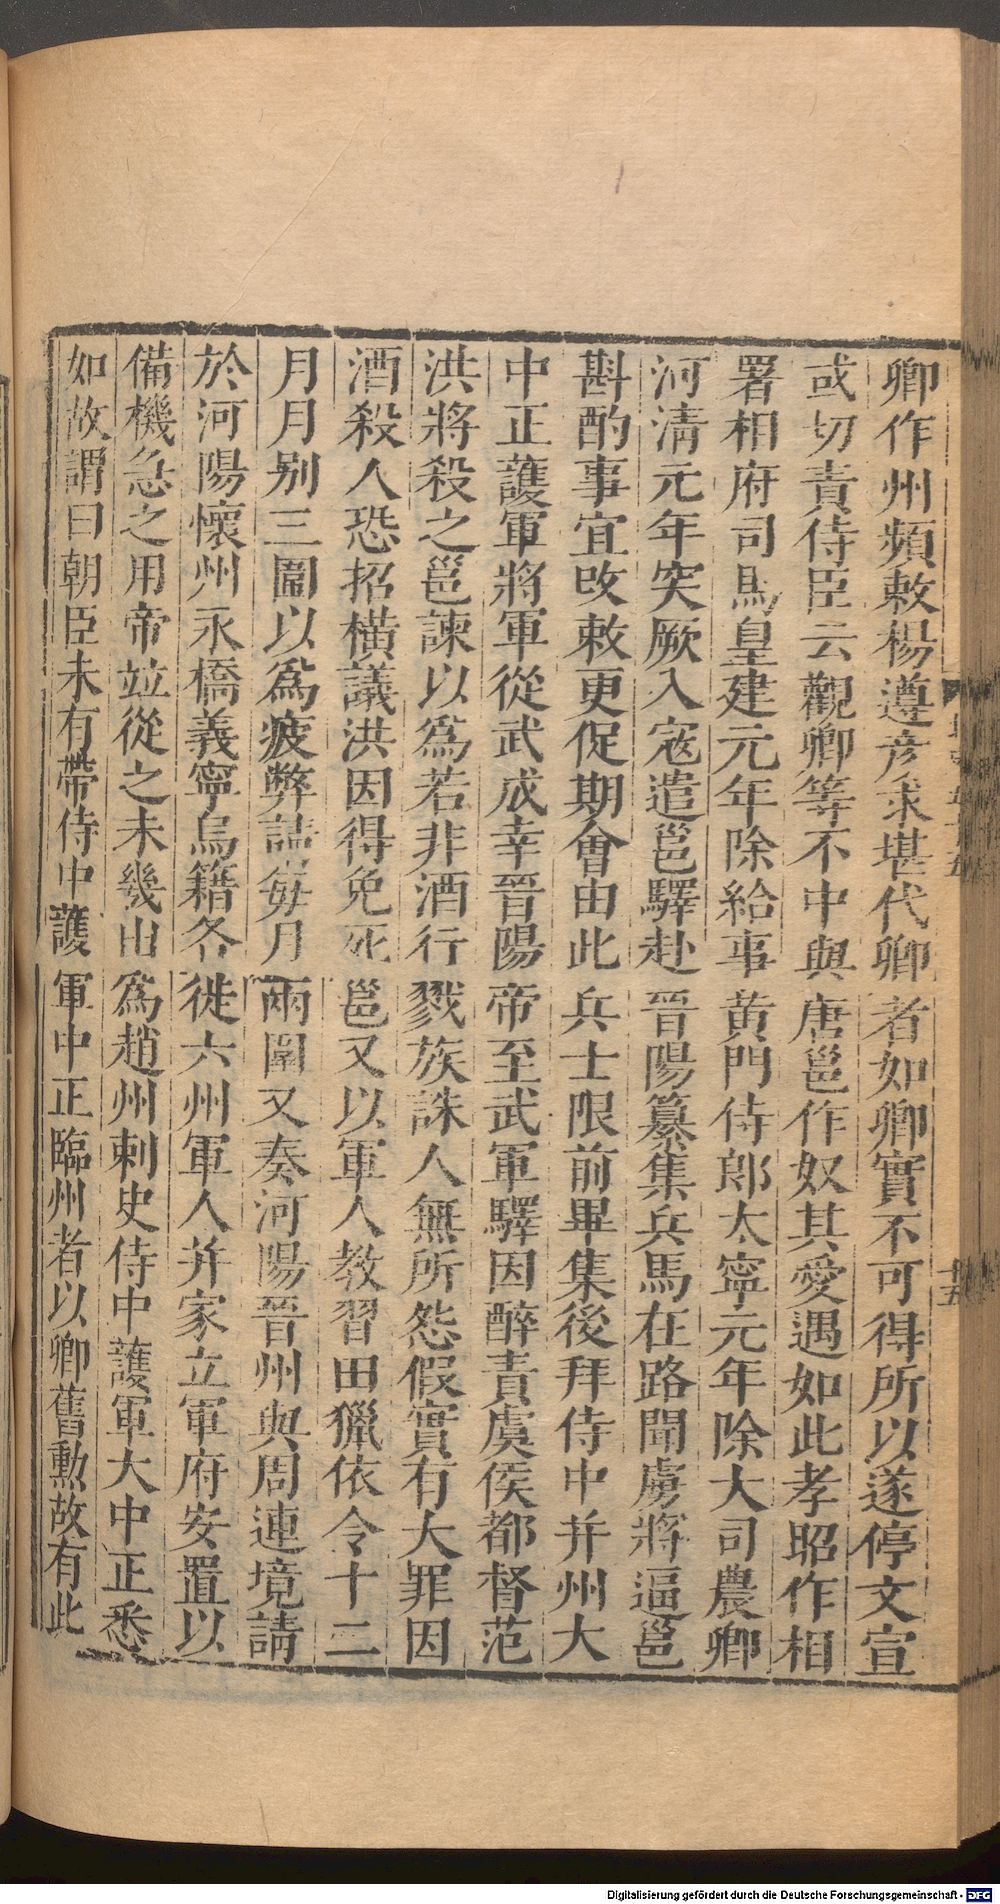 卿作州頻敕楊遵彥求堪代卿者如卿實不可得所以遂停文宣
或切責侍臣云觀卿等不中與唐邕作奴其愛遇如此孝昭作相
署相府司馬皇建元年除給事黃門侍郎太寧元年除大司農卿
河清元年突厥入寇遣邕驛赴晉陽纂集兵馬在路聞虜將逼邕
斟酌事宜改敕更促期會由此兵士限前畢集後拜侍中并州大
中正護軍將軍從武成幸晉陽帝至武軍驛因醉責虞侯都督范
洪將殺之邕諫以爲若非酒行戮族誅人無所怨假實有大罪因
酒殺人恐招橫議洪因得免死邕又以軍人教習田獵依令十二
月月別三圍以爲疲弊請每月兩圍又奏河陽晉州與周連境請
於河陽懷州永橋義寧烏籍各徙六州軍人并家立軍府安置以
備機急之用帝竝從之未幾出爲趙州刺史侍中護軍大中正悉
如故謂曰朝臣未有帶侍中護軍中正臨州者以卿舊勳故有此
十五
Digitalisierung gefördert durch die Deutsche Forschungsgemeinschaft - DFG